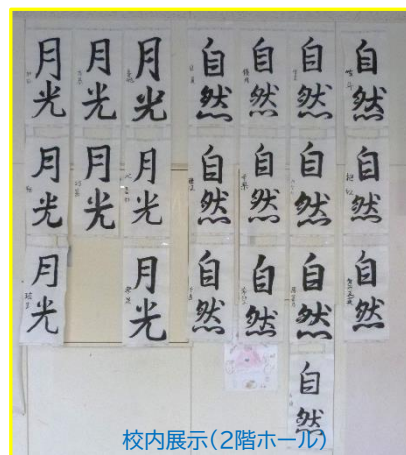 月光
月光
月光
自然
自然
自然
自然
月光
月光
月光
自然
自然
自然
自然
月光
月光
自然
自然
自然
自然
自然
校内展示(2階ホール)